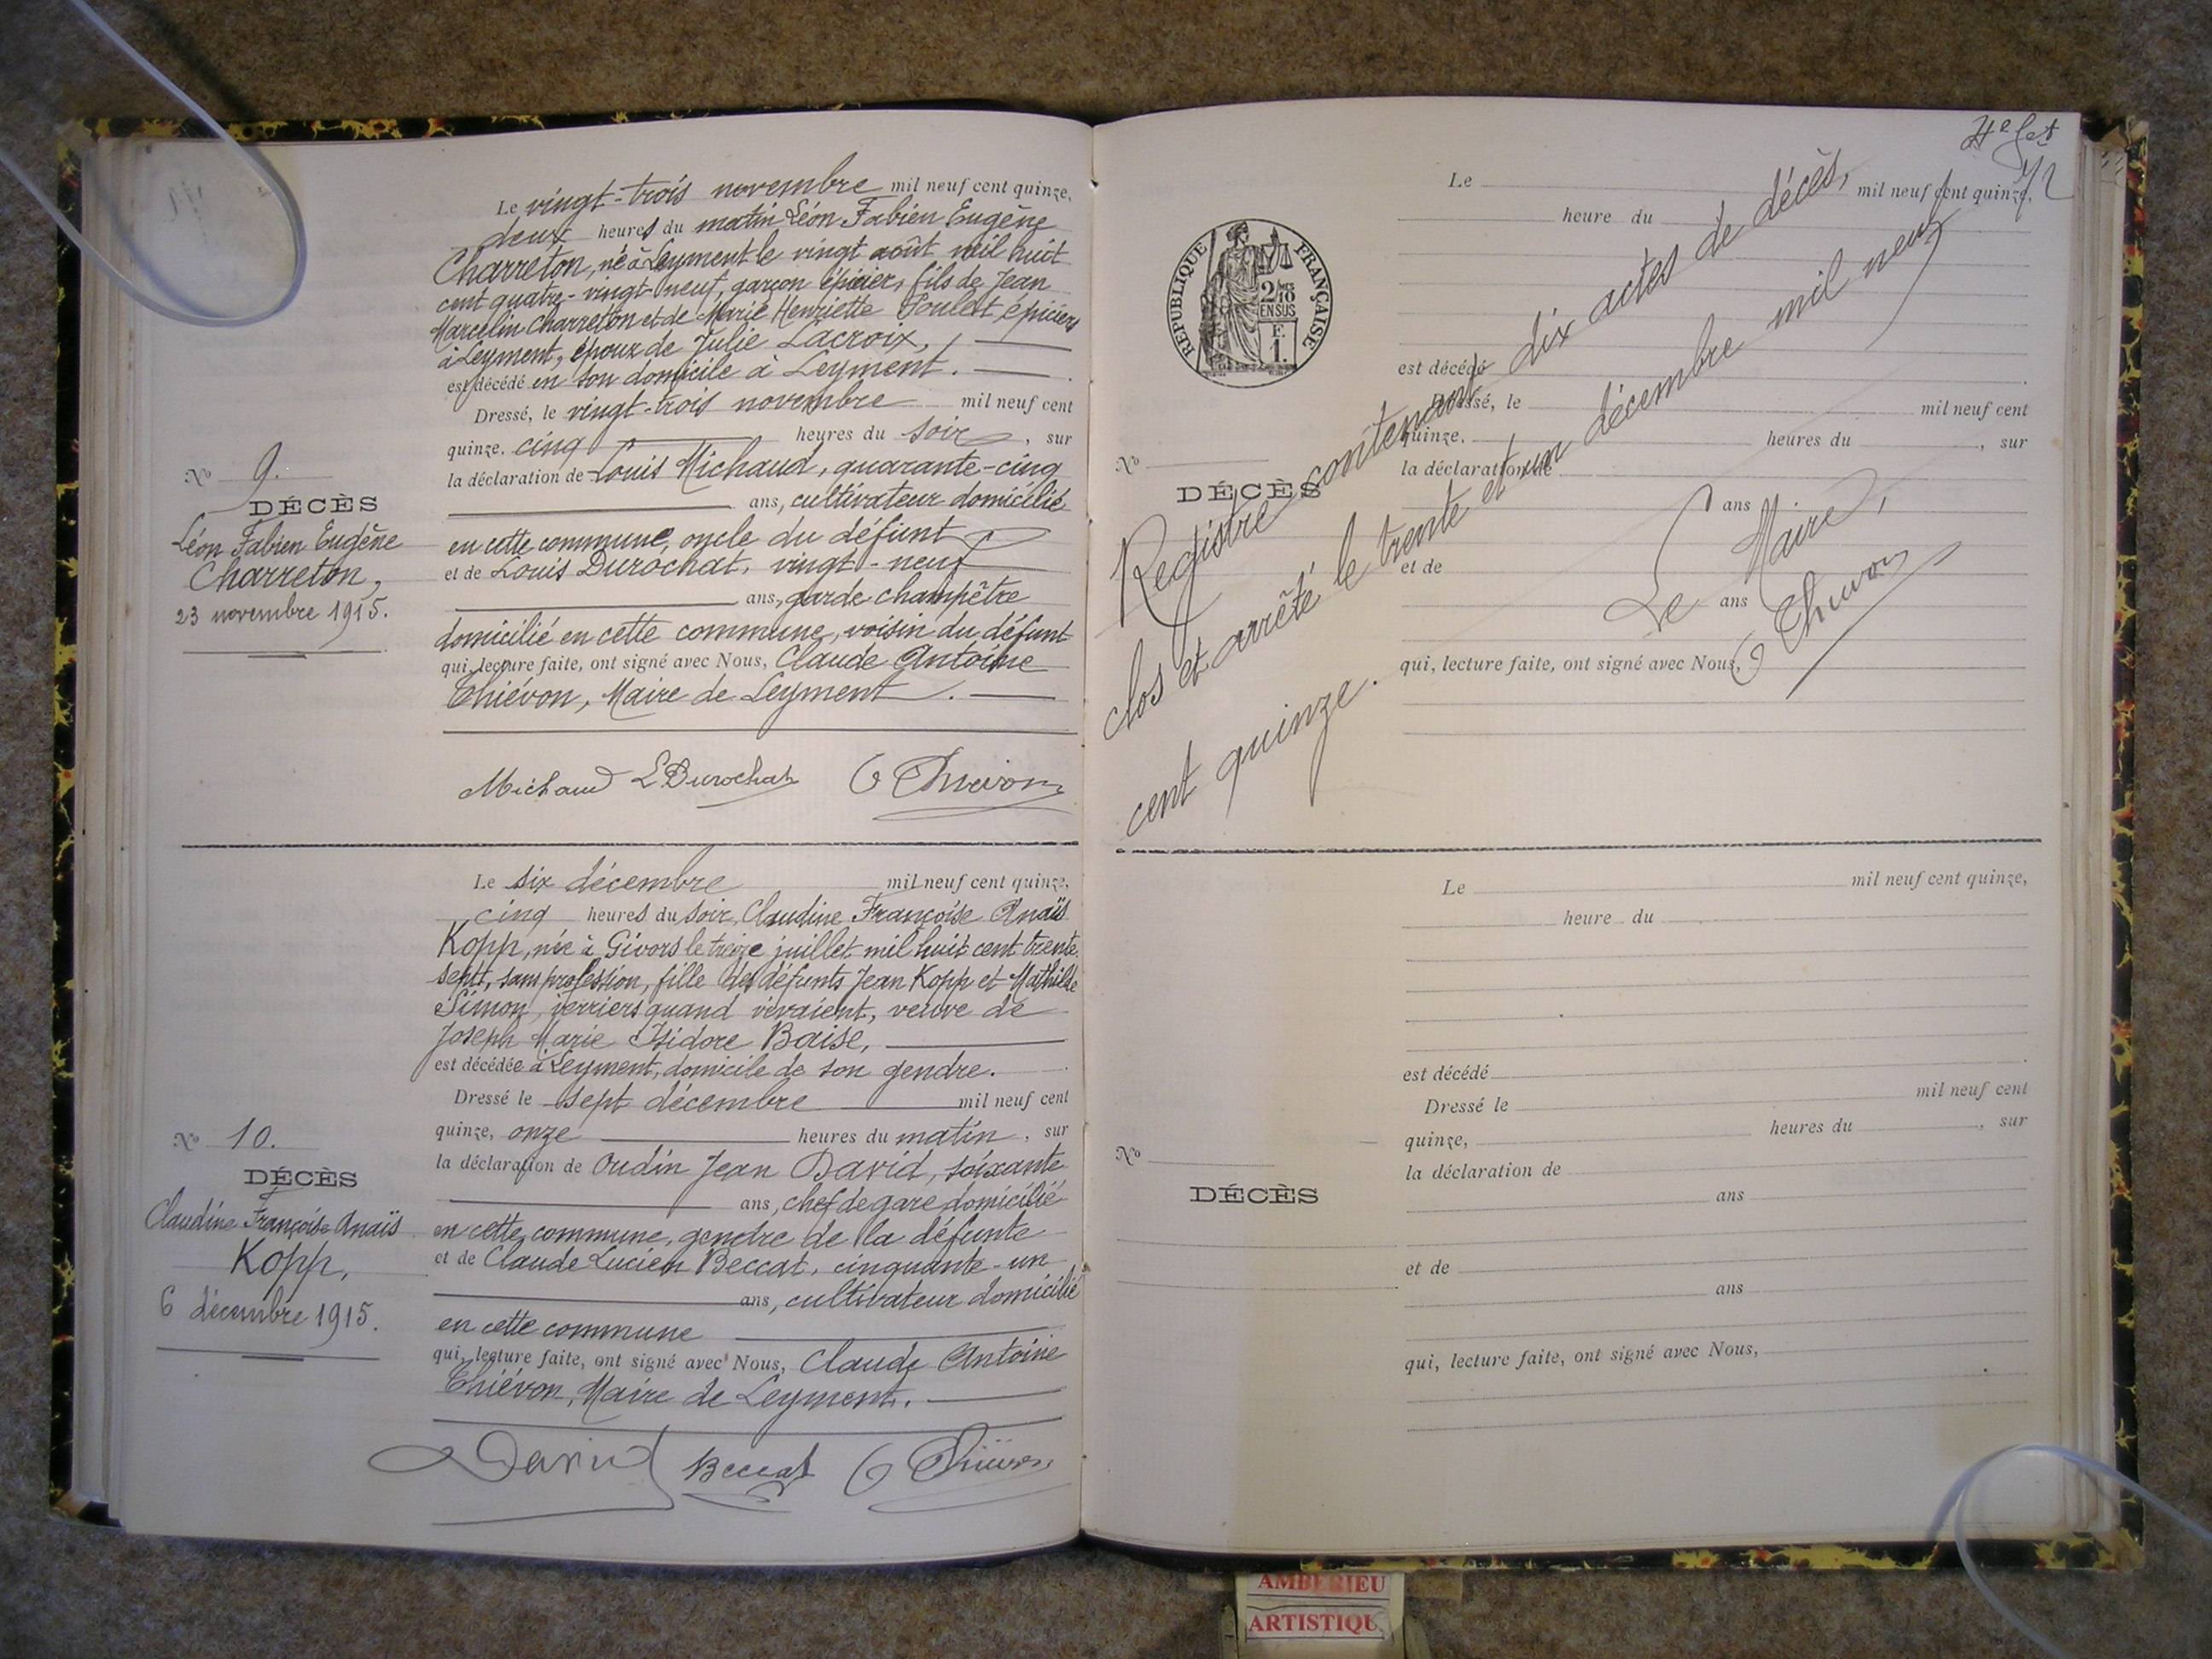 Le vingt-trois novembre mil neuf cent quinze,
deux heures du matin Léon Fabien Eugène
Charreton, né à Leyment le vingt août mil huit
cent quatre-vingt-neuf, garçon épicier, fils de Jean
Marcelin Charreton et de Marie Henriette Poulet, épiciers
à Leyment, époux de Julie Lacroix,
est décédé en son domicile à Leyment.
Dressé, le vingt-trois novembre mil neuf cent
quinze. cinq heures du soir, sur
la déclaration de Louis Michaud, quarante-cinq
ans, cultivateur domicilié
en cette commune, oncle du défunt
et de Louis Durochat, vingt-neuf
ans, garde champêtre
domicilié en cette commune, voisin du défunt
qui, lecture faite, ont signé avec Nous, Claude Antoine
Thiévon, Maire de Leyment.
Michaud L Durochat C Thiévon
No 9.
DÉCÈS
Léon Fabien Eugène
Charreton,
23 novembre 1915.
Le six décembre mil neuf cent quinze,
cinq heures du soir, Claudine Françoise Anaïs
Kopp, née à Givors le treize juillet mil huit cent trente
sept, sans profession, fille des défunts Jean Kopp et Mathilde
Simon, verriers quand vivaient, veuve de
Joseph Marie Isidore Baise,
est décédée à Leyment, domicile de son gendre.
Dressé le sept décembre mil neuf cent
quinze, onze heures du matin, sur
la déclaration de Oudin Jean David, soixante
ans, chef de gare domicilié
en cette commune, gendre de la défunte
et de Claude Lucien Beccat, cinquante-un
ans, cultivateur domicilié
en cette commune
qui, lecture faite, ont signé avec Nous, Claude Antoine
Thiévon, Maire de Leyment.
David Beccat C Thiévon
No 10.
DÉCÈS
Claudine Françoise Anaïs
Kopp,
6 décembre 1915.
72
Le mil neuf cent quinze,
heure du
RÉPUBLIQUE FRANÇAISE
2/10
EN SUS
F.
1.
est décédé
Dressé, le mil neuf cent
quinze. heures du , sur
la déclaration de
ans
et de
ans
qui, lecture faite, ont signé avec Nous,
No
DÉCÈS
Registre contenant dix actes de décès,
clos et arrêté le trente et un décembre mil neuf
cent quinze.
Le Maire,
C Thiévon
Le mil neuf cent quinze,
heure du
est décédé
Dressé le mil neuf cent
quinze, heures du , sur
la déclaration de
ans
et de
ans
qui, lecture faite, ont signé avec Nous,
No
DÉCÈS
AMBERIEU
ARTISTIQU